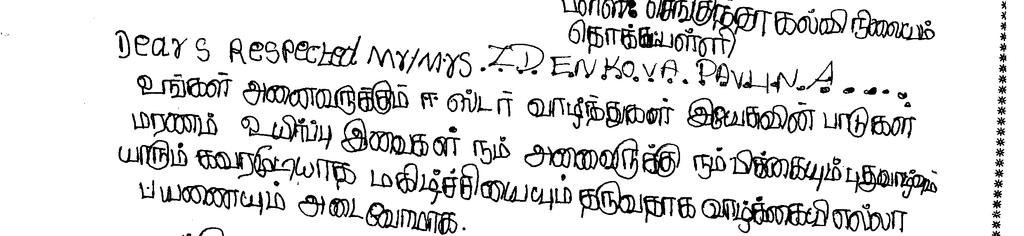 செங்குந்தா கல்வி நிலையம்
தொக்கபள்ளி
Dears Respected Mr/Mrs. Z.D.E.N.KO.V.A. PAVLIN.A.....
உங்கள் அனைவருக்கும் ஈஸ்டர் வாழ்த்துகள் இயேசுவின் பாடுகள்
மரணம் உயிர்ப்பு இவைகள் நம் அனைவருக்கு நம்பிக்கையும் புதுவாழ்வும்
யாரும் மகிழ்ச்சியையும் தருவதாக
பயணையும் அடைவோமாக.